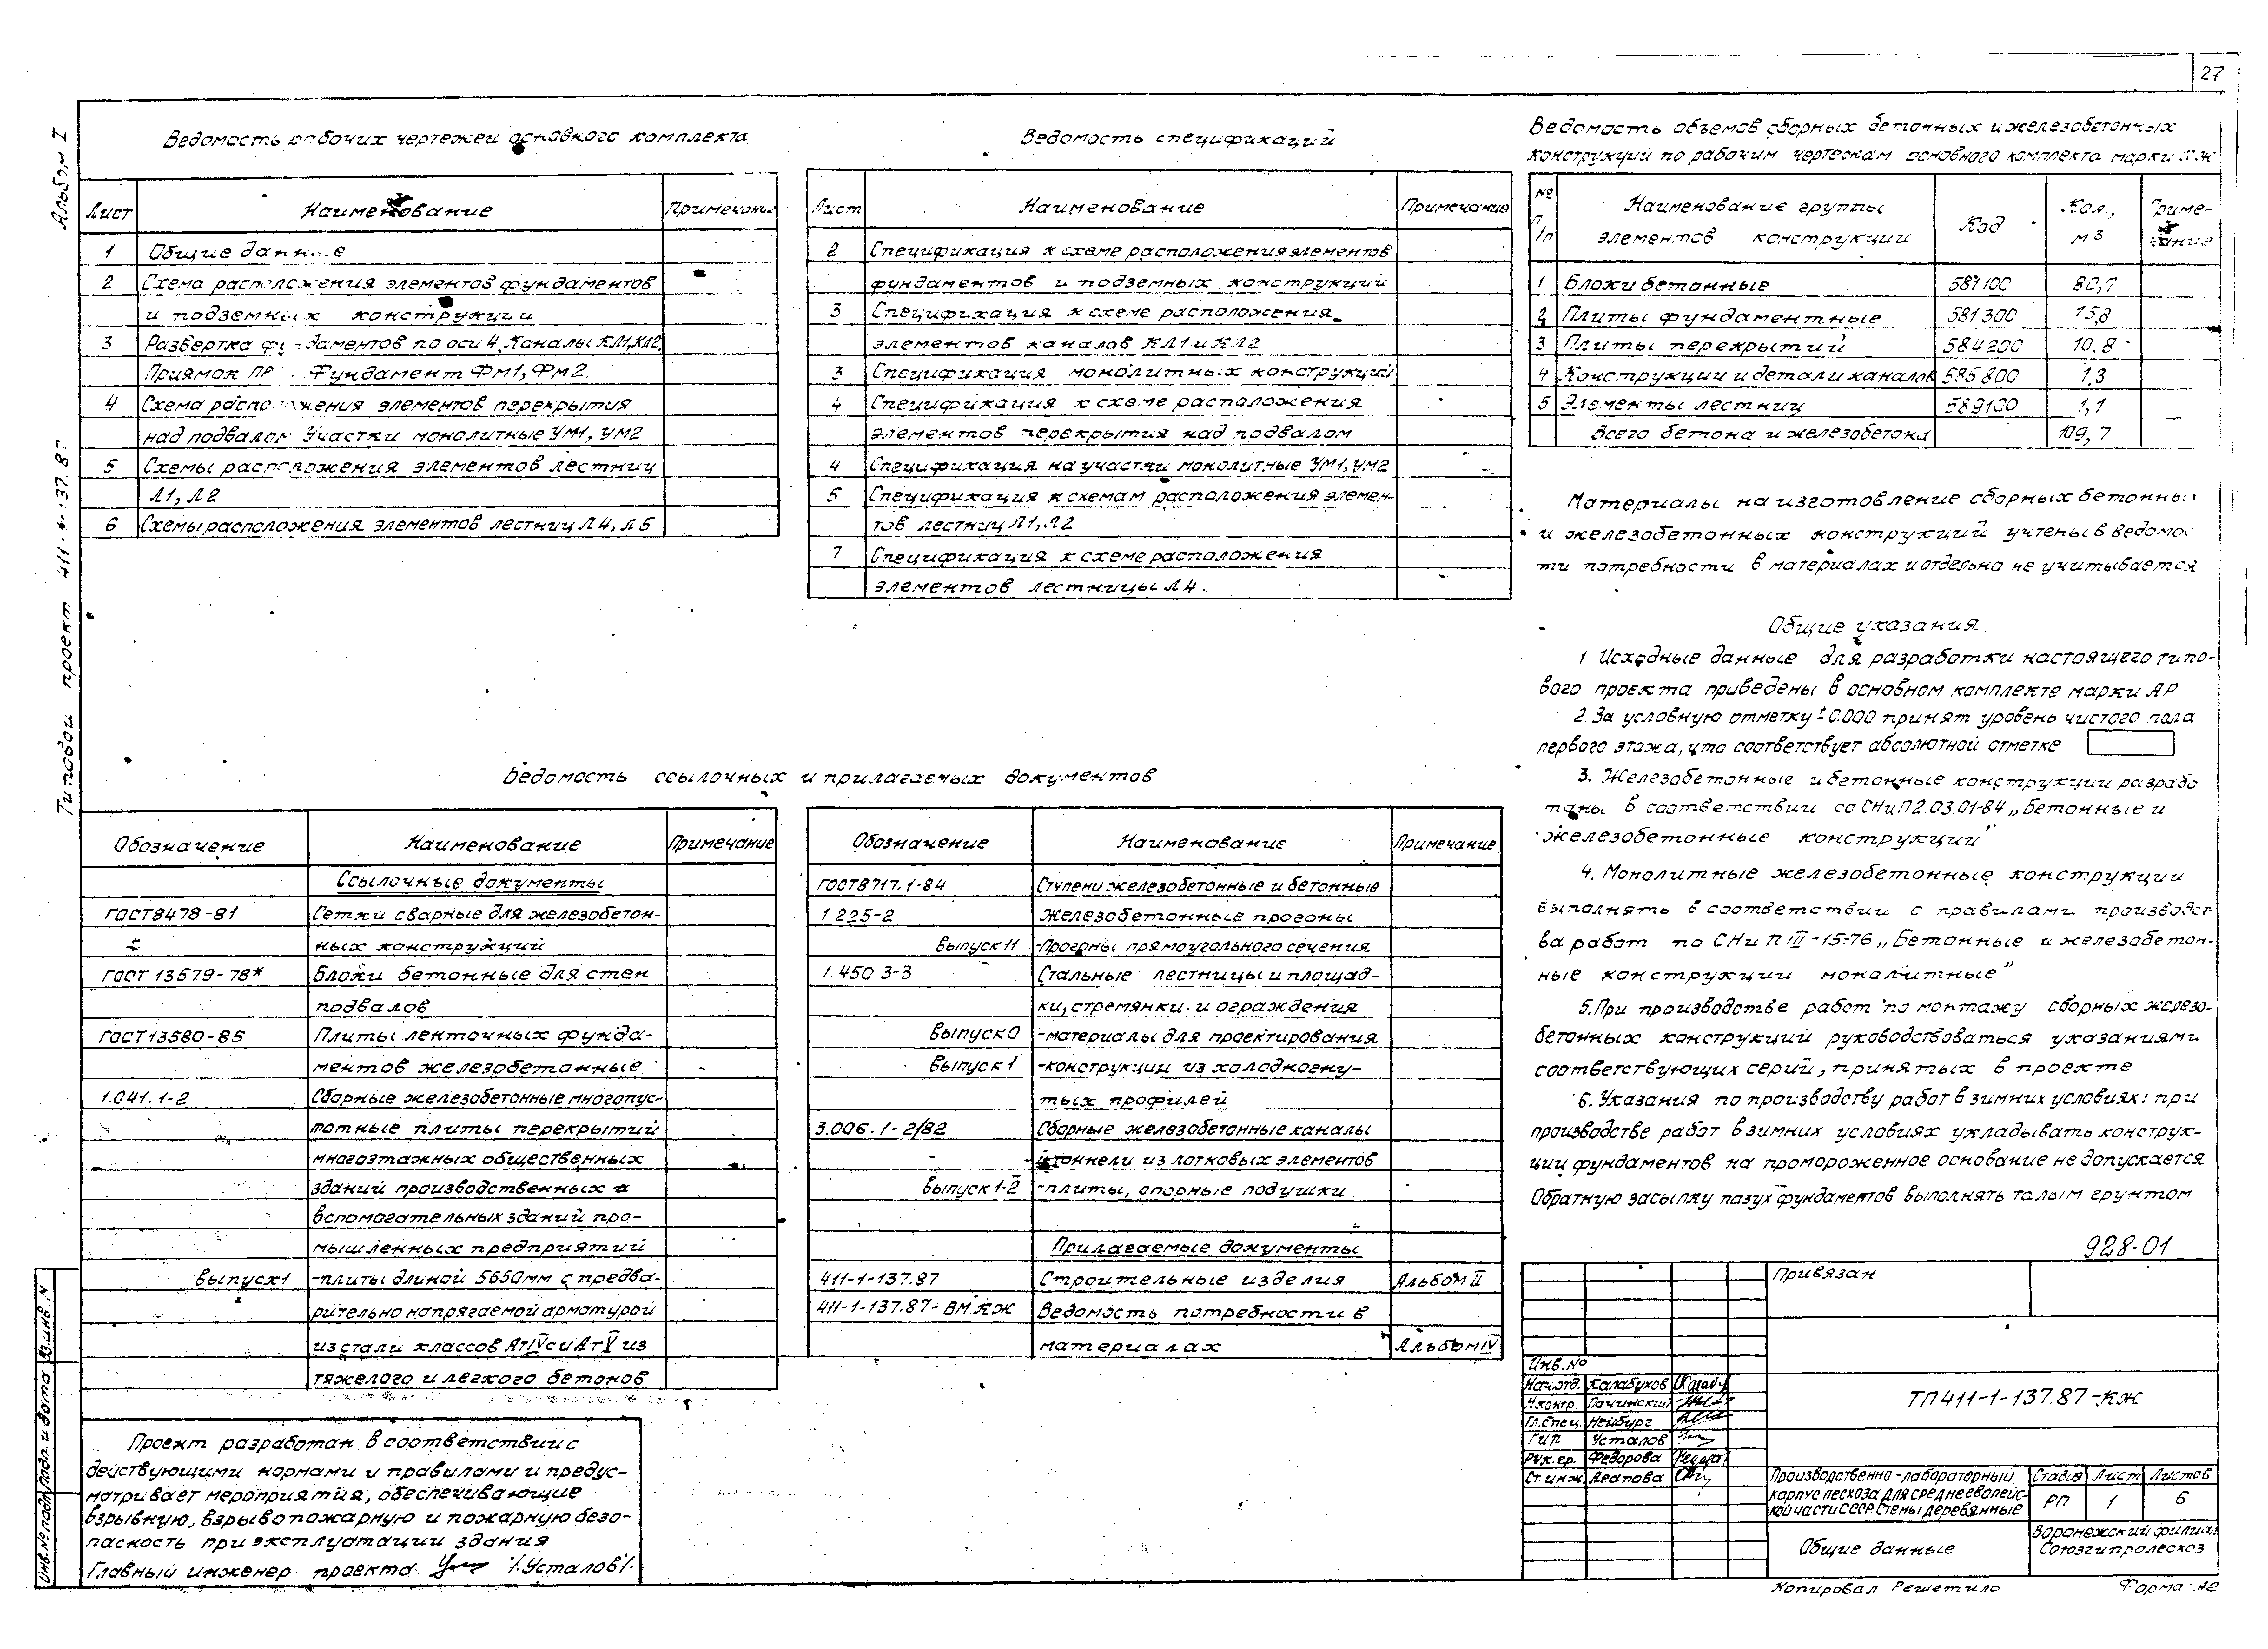 27
Альбом I
Типовой проект 411-1-137.87
Ведомость рабочих чертежей основного комплекта
Лист Наименование Примечание
1 Общие данные
2 Схема расположения элементов фундаментов
и подземных конструкции
3 Развертка фундаментов по оси 4. Каналы КЛ1, КЛ2.
Приямок ПР . Фундамент Фм1, Фм2.
4 Схема расположения элементов перекрытия
над подвалом Участки монолитные Ум1, Ум2
5 Схемы расположения элементов лестниц
Л1, Л2
6 Схемы расположения элементов лестниц Л4, Л5
Ведомость спецификаций
Лист Наименование Примечание
2 Спецификация к схеме расположения элементов
фундаментов и подземных конструкций
3 Спецификация к схеме расположения
элементов каналов КЛ1 и КЛ2
3 Спецификация монолитных конструкций
4 Спецификация к схеме расположения
элементов перекрытия над подвалом
4 Спецификация на участки монолитные УМ1, УМ2
5 Спецификация к схемам расположения элемен-
тов лестниц Л1, Л2
7 Спецификация к схеме расположения
элементов лестницы Л4.
Ведомость объемов сборных бетонных и железобетонных
конструкций по рабочим чертежам основного комплекта марки КЖ
№ п/п Наименование группы элементов конструкции Код Кол., м3 Примечание
1 Блоки бетонные 581100 80,7
2 Плиты фундаментные 581300 15,8
3 Плиты перекрытий 584200 10.8
4 Конструкции и детали каналов 585800 1,3
5 Элементы лестниц 589100 1,1
Всего бетона и железобетона 109,7
Материалы на изготовление сборных бетонных
и железобетонных конструкций учтены в ведомос
ти потребности в материалах и отдельно не учитывается
Общие указания.
1 Исходные данные для разработки настоящего типо-
вого проекта приведены в основном комплекте марки АР
2. За условную отметку ±0.000 принят уровень чистого пола
первого этажа, что соответствует абсолютной отметке
3. Железобетонные и бетонные конструкции разрабо
таны в соответствии со СНиП 2.03.01-84 „Бетонные и
железобетонные конструкции”
4. Монолитные железобетонные конструкции
выполнять в соответствии с правилами производст
ва работ по СНиП III-15-76 „Бетонные и железобетон-
ные конструкции монолитные”
5. При производстве работ по монтажу сборных железо-
бетонных конструкций руководствоваться указаниями
соответствующих серий, принятых в проекте
6. Указания по производству работ в зимних условиях: при
производстве работ в зимних условиях укладывать конструк-
ции фундаментов на промороженное основание не допускается
Обратную засыпку пазух фундаментов выполнять талым грунтом
Ведомость ссылочных и прилагаемых документов
Обозначение Наименование Примечание
Ссылочные документы
ГОСТ 8478-81 Сетки сварные для железобетон-
ных конструкций
ГОСТ 13579-78* Блоки бетонные для стен
подвалов
ГОСТ 13580-85 Плиты ленточных фунда-
ментов железобетонные
1.041.1-2 Сборные железобетонные многопус-
тотные плиты перекрытий
многоэтажных общественных
зданий производственных и
вспомогательных зданий про-
мышленных предприятий
выпуск 1 -плиты длиной 5650мм с предва-
рительно напрягаемой арматурой
из стали классов АтIVс и АтV из
тяжелого и легкого бетонов
Обозначение Наименование Примечание
ГОСТ 8717.1-84 Ступени железобетонные и бетонные
1 225-2 Железобетонные прогоны
выпуск 11 -Прогоны прямоугольного сечения
1.450.3-3 Стальные лестницы и площад-
ки, стремянки и ограждения
выпуск 0 -материалы для проектирования
Выпуск 1 -конструкции из холодногну-
тых профилей
3.006.1-2/82 Сборные железобетонные каналы
и тоннели из лотковых элементов
Выпуск 1-2 -плиты, опорные подушки
Прилагаемые документы
411-1-137.87 Строительные изделия Альбом II
411-1-137.87-ВМ.КЖ Ведомость потребности в
материалах Альбом IV
Проект разработан в соответствии с
действующими нормами и правилами и предус-
матривает мероприятия, обеспечивающие
взрывную, взрывопожарную и пожарную безо-
пасность при эксплуатации здания
Главный инженер проекта /.Усталов/.
928-01
Привязан
Инв. №
Нач.отд. Калабухов
Н.контр. Пачинский
Гл.спец. Нейбург
ГИП Усталов
Рук.гр. Федорова
Ст.инж. Арапова
ТП 411-1-137.87-КЖ
Производственно-лабораторный
корпус лесхоза для среднеевропейс-
кой части СССР. Стены деревянные
Стадия Лист Листов
РП 1 6
Общие данные
Воронежский филиал
Союзгипролесхоз
Копировал Решетило Форма А2
Инв.№ подл. Подп. и дата Вз.инв.№